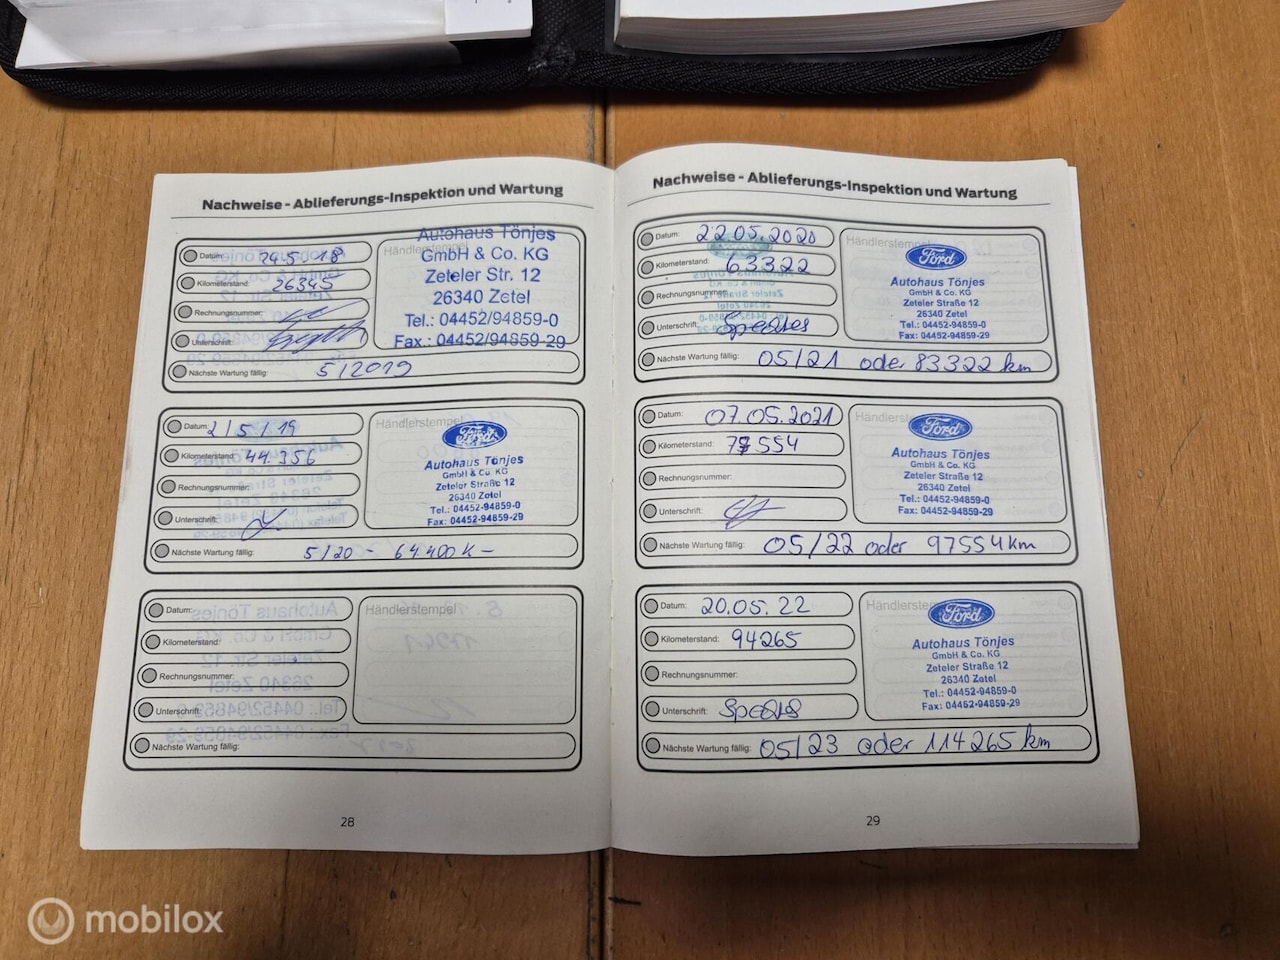 Nachweise - Ablieferungs-Inspektion und Wartung
Datum: 24.5 18
Kilometerstand: 26345
Rechnungsnummer:
Unterschrift:
Nächste Wartung fällig: 5/2019
Händlerstempel
Autohaus Tönjes
GmbH & Co. KG
Zeteler Str. 12
26340 Zetel
Tel.: 04452/94859-0
Fax.: 04452/94859-29
Datum: 2/5/19
Kilometerstand: 44.356
Rechnungsnummer:
Unterschrift:
Nächste Wartung fällig: 5/20 - 64400K-
Händlerstempel
Ford
Autohaus Tönjes
GmbH & Co. KG
Zeteler Straße 12
26340 Zetel
Tel.: 04452-94859-0
Fax: 04452-94859-29
Datum:
Kilometerstand:
Rechnungsnummer:
Unterschrift:
Nächste Wartung fällig:
Händlerstempel
28
Nachweise - Ablieferungs-Inspektion und Wartung
Datum: 22.05.2020
Kilometerstand: 63322
Rechnungsnummer:
Unterschrift:
Nächste Wartung fällig: 05/21 oder 83322 km
Händlerstempel
Ford
Autohaus Tönjes
GmbH & Co. KG
Zeteler Straße 12
26340 Zetel
Tel.: 04452-94859-0
Fax: 04452-94859-29
Datum: 07.05.2021
Kilometerstand: 77554
Rechnungsnummer:
Unterschrift:
Nächste Wartung fällig: 05/22 oder 97554km
Händlerstempel
Ford
Autohaus Tönjes
GmbH & Co. KG
Zeteler Straße 12
26340 Zetel
Tel.: 04452-94859-0
Fax: 04452-94859-29
Datum: 20.05.22
Kilometerstand: 94265
Rechnungsnummer:
Unterschrift:
Nächste Wartung fällig: 05/23 oder 114265 km
Händlerstempel
Ford
Autohaus Tönjes
GmbH & Co. KG
Zeteler Straße 12
26340 Zetel
Tel.: 04452-94859-0
Fax: 04452-94859-29
29
mobilox